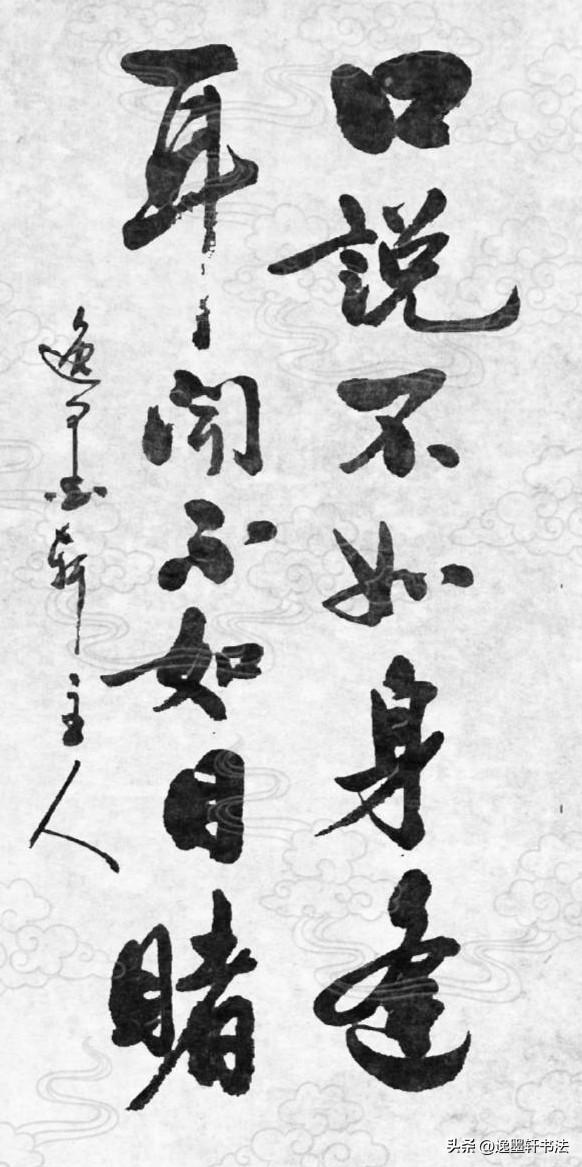 口說不如身逢
耳闻不如目睹
逸墨轩主人
头条 @逸墨轩书法